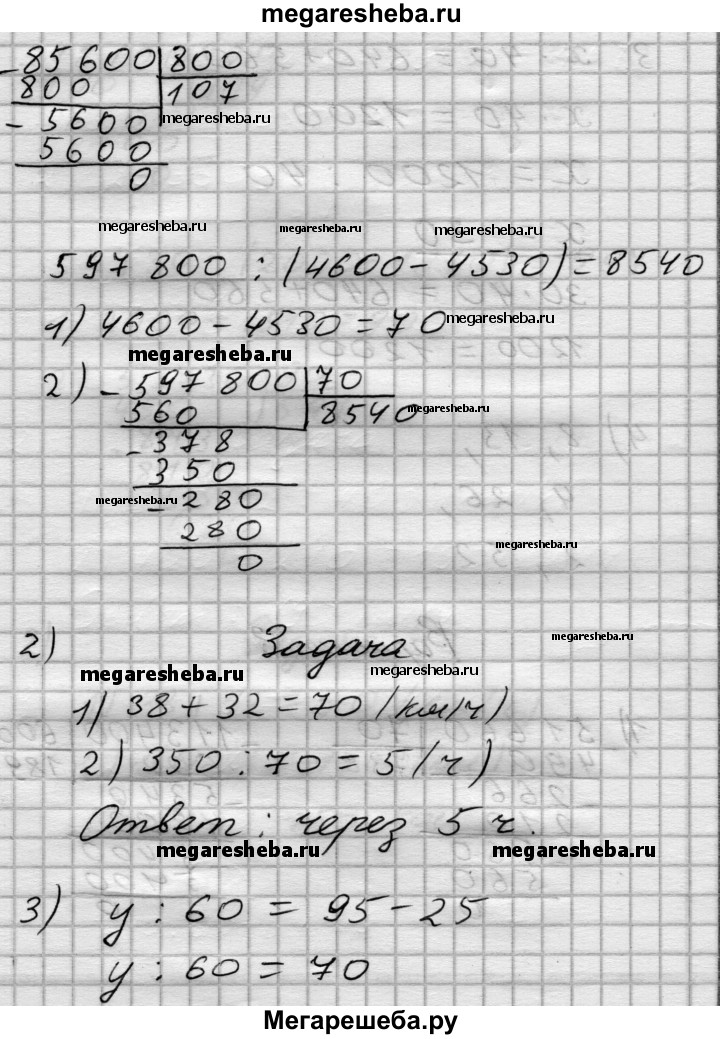 megaresheba.ru
- 85600 | 800
800 | 107
- 5600 megaresheba.ru
5600
0
megaresheba.ru megaresheba.ru megaresheba.ru
597 800 : (4600 - 4530) = 8540
1) 4600 - 4530 = 70 megaresheba.ru
megaresheba.ru
2) - 597 800 | 70
560 | 8540 megaresheba.ru
- 378
350
megaresheba.ru - 280
280 megaresheba.ru
0
2) Задача megaresheba.ru
megaresheba.ru megaresheba.ru
1) 38 + 32 = 70 (км/ч)
2) 350 : 70 = 5 (ч)
Ответ : через 5 ч.
megaresheba.ru megaresheba.ru
3) y : 60 = 95 - 25
y : 60 = 70
Мегарешеба.ру